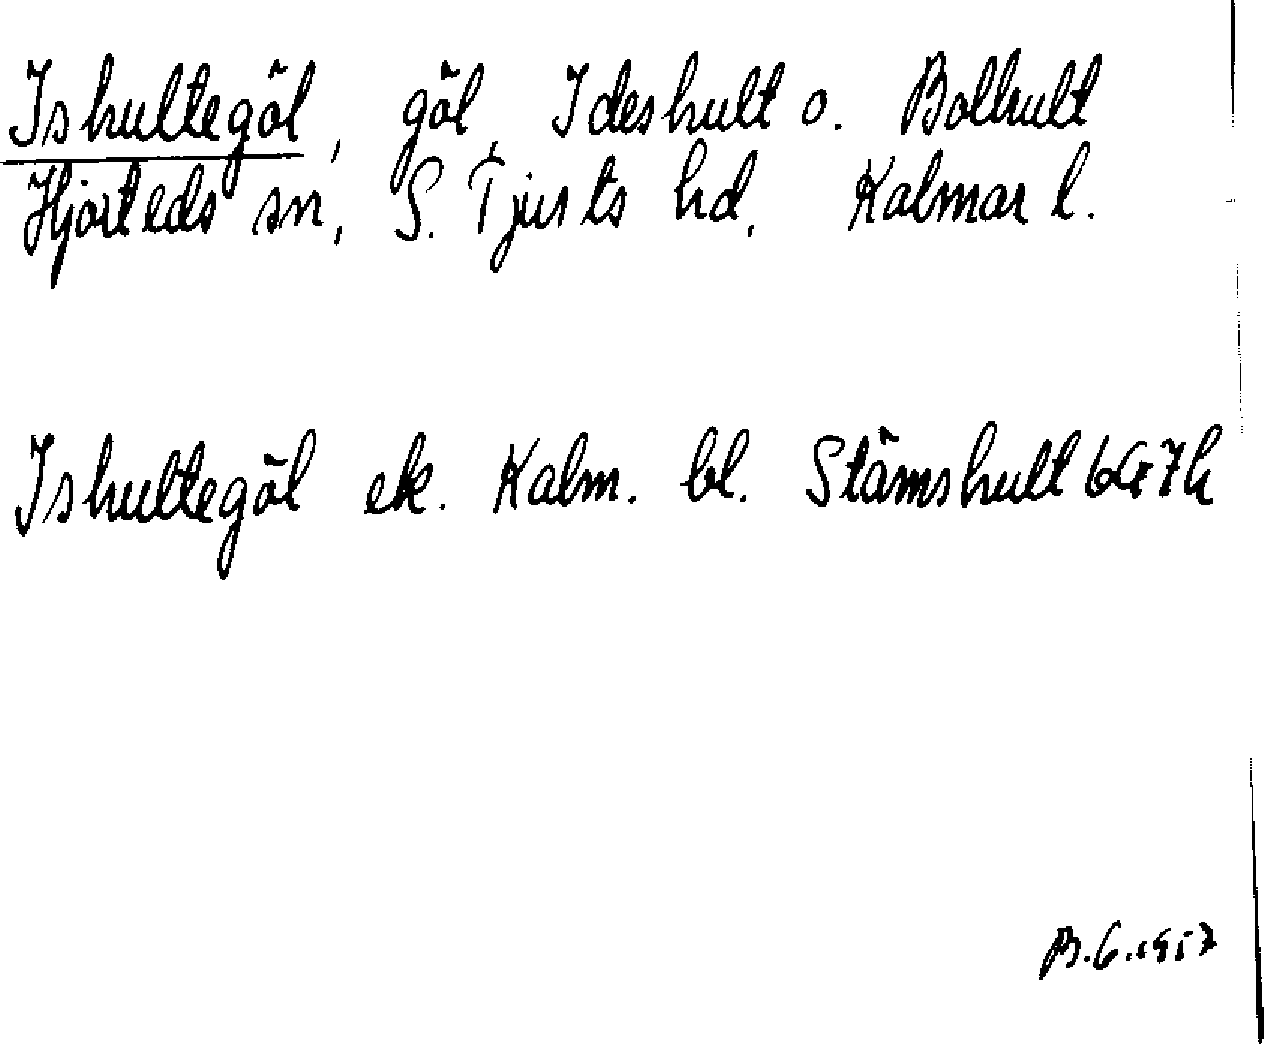 Ishultegöl, göl, Ideshult o. Bolhult
Hjorteds sn, S. Tjusts hd, Kalmar l.
Ishultegöl ek. Kalm. bl. Stämshult 6G7h
B.G.1957